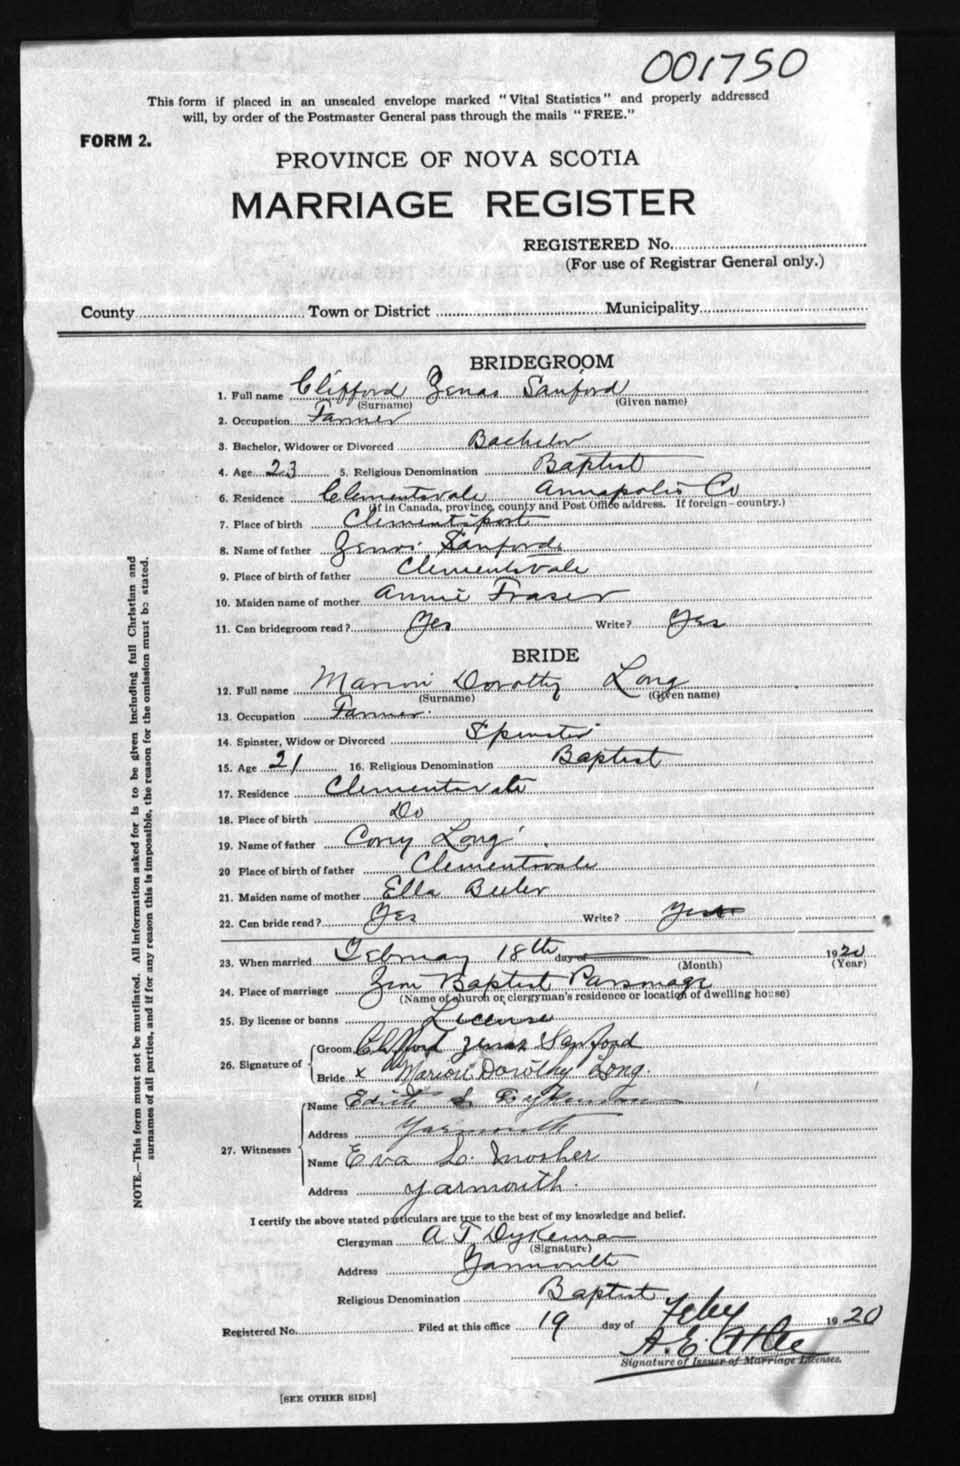 001750
This form if placed in an unsealed envelope marked "Vital Statistics" and properly addressed
will, by order of the Postmaster General pass through the mails "FREE."
FORM 2.
PROVINCE OF NOVA SCOTIA
MARRIAGE REGISTER
REGISTERED No.
(For use of Registrar General only.)
County Town or District Municipality
BRIDEGROOM
1. Full name Clifford Zenas Sanford
(Surname) (Given name)
2. Occupation Farmer
3. Bachelor, Widower or Divorced Bachelor
4. Age 23 5. Religious Denomination Baptist
6. Residence Clementsvale Annapolis Co
(If in Canada, province, county and Post Office address. If foreign—country.)
7. Place of birth Clementsport
8. Name of father Zenas Sanford
9. Place of birth of father Clementsvale
10. Maiden name of mother Annie Fraser
11. Can bridegroom read? Yes Write? Yes
BRIDE
12. Full name Marion Dorothy Long
(Surname) (Given name)
13. Occupation Farmer
14. Spinster, Widow or Divorced Spinster
15. Age 21 16. Religious Denomination Baptist
17. Residence Clementsvale
18. Place of birth Do
19. Name of father Long
20 Place of birth of father Clementsvale
21. Maiden name of mother Ella Beeler
22. Can bride read? Yes Write? Yes
23. When married February 18th day of 1920
(Month) (Year)
24. Place of marriage Zion Baptist Parsonage
(Name of church or clergyman's residence or location of dwelling house)
25. By license or banns License
26. Signature of Groom Clifford Zenas Sanford
Bride x Marion Dorothy Long.
27. Witnesses Name Edith Dykeman
Address Yarmouth
Name Eva L. Mosher
Address Yarmouth.
I certify the above stated particulars are true to the best of my knowledge and belief.
Clergyman A T Dykeman
(Signature)
Address Yarmouth
Religious Denomination Baptist
Registered No. Filed at this office 19 day of Feby 1920
A. E.
Signature of Issuer of Marriage Licenses.
[SEE OTHER SIDE]
NOTE.—This form must not be mutilated. All information asked for is to be given including full Christian and
surnames of all parties, and if for any reason this is impossible, the reason for the omission must be stated.